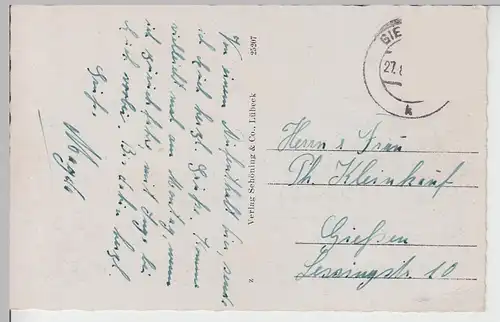 Von einem Aufenthalt hier, sende
ich Euch herzl. Grüße. Komme
vielleicht mal am Montag, wenn
ich zurückfahre mit Inge bei
Euch vorbei. Bis dahin herzl.
Grüße
Magda
Verlag Schöning & Co., Lübeck 25207
z
GIE
27.
k
Herrn & Frau
Ph. Kleinkauf
Gießen
Lessingstr. 10